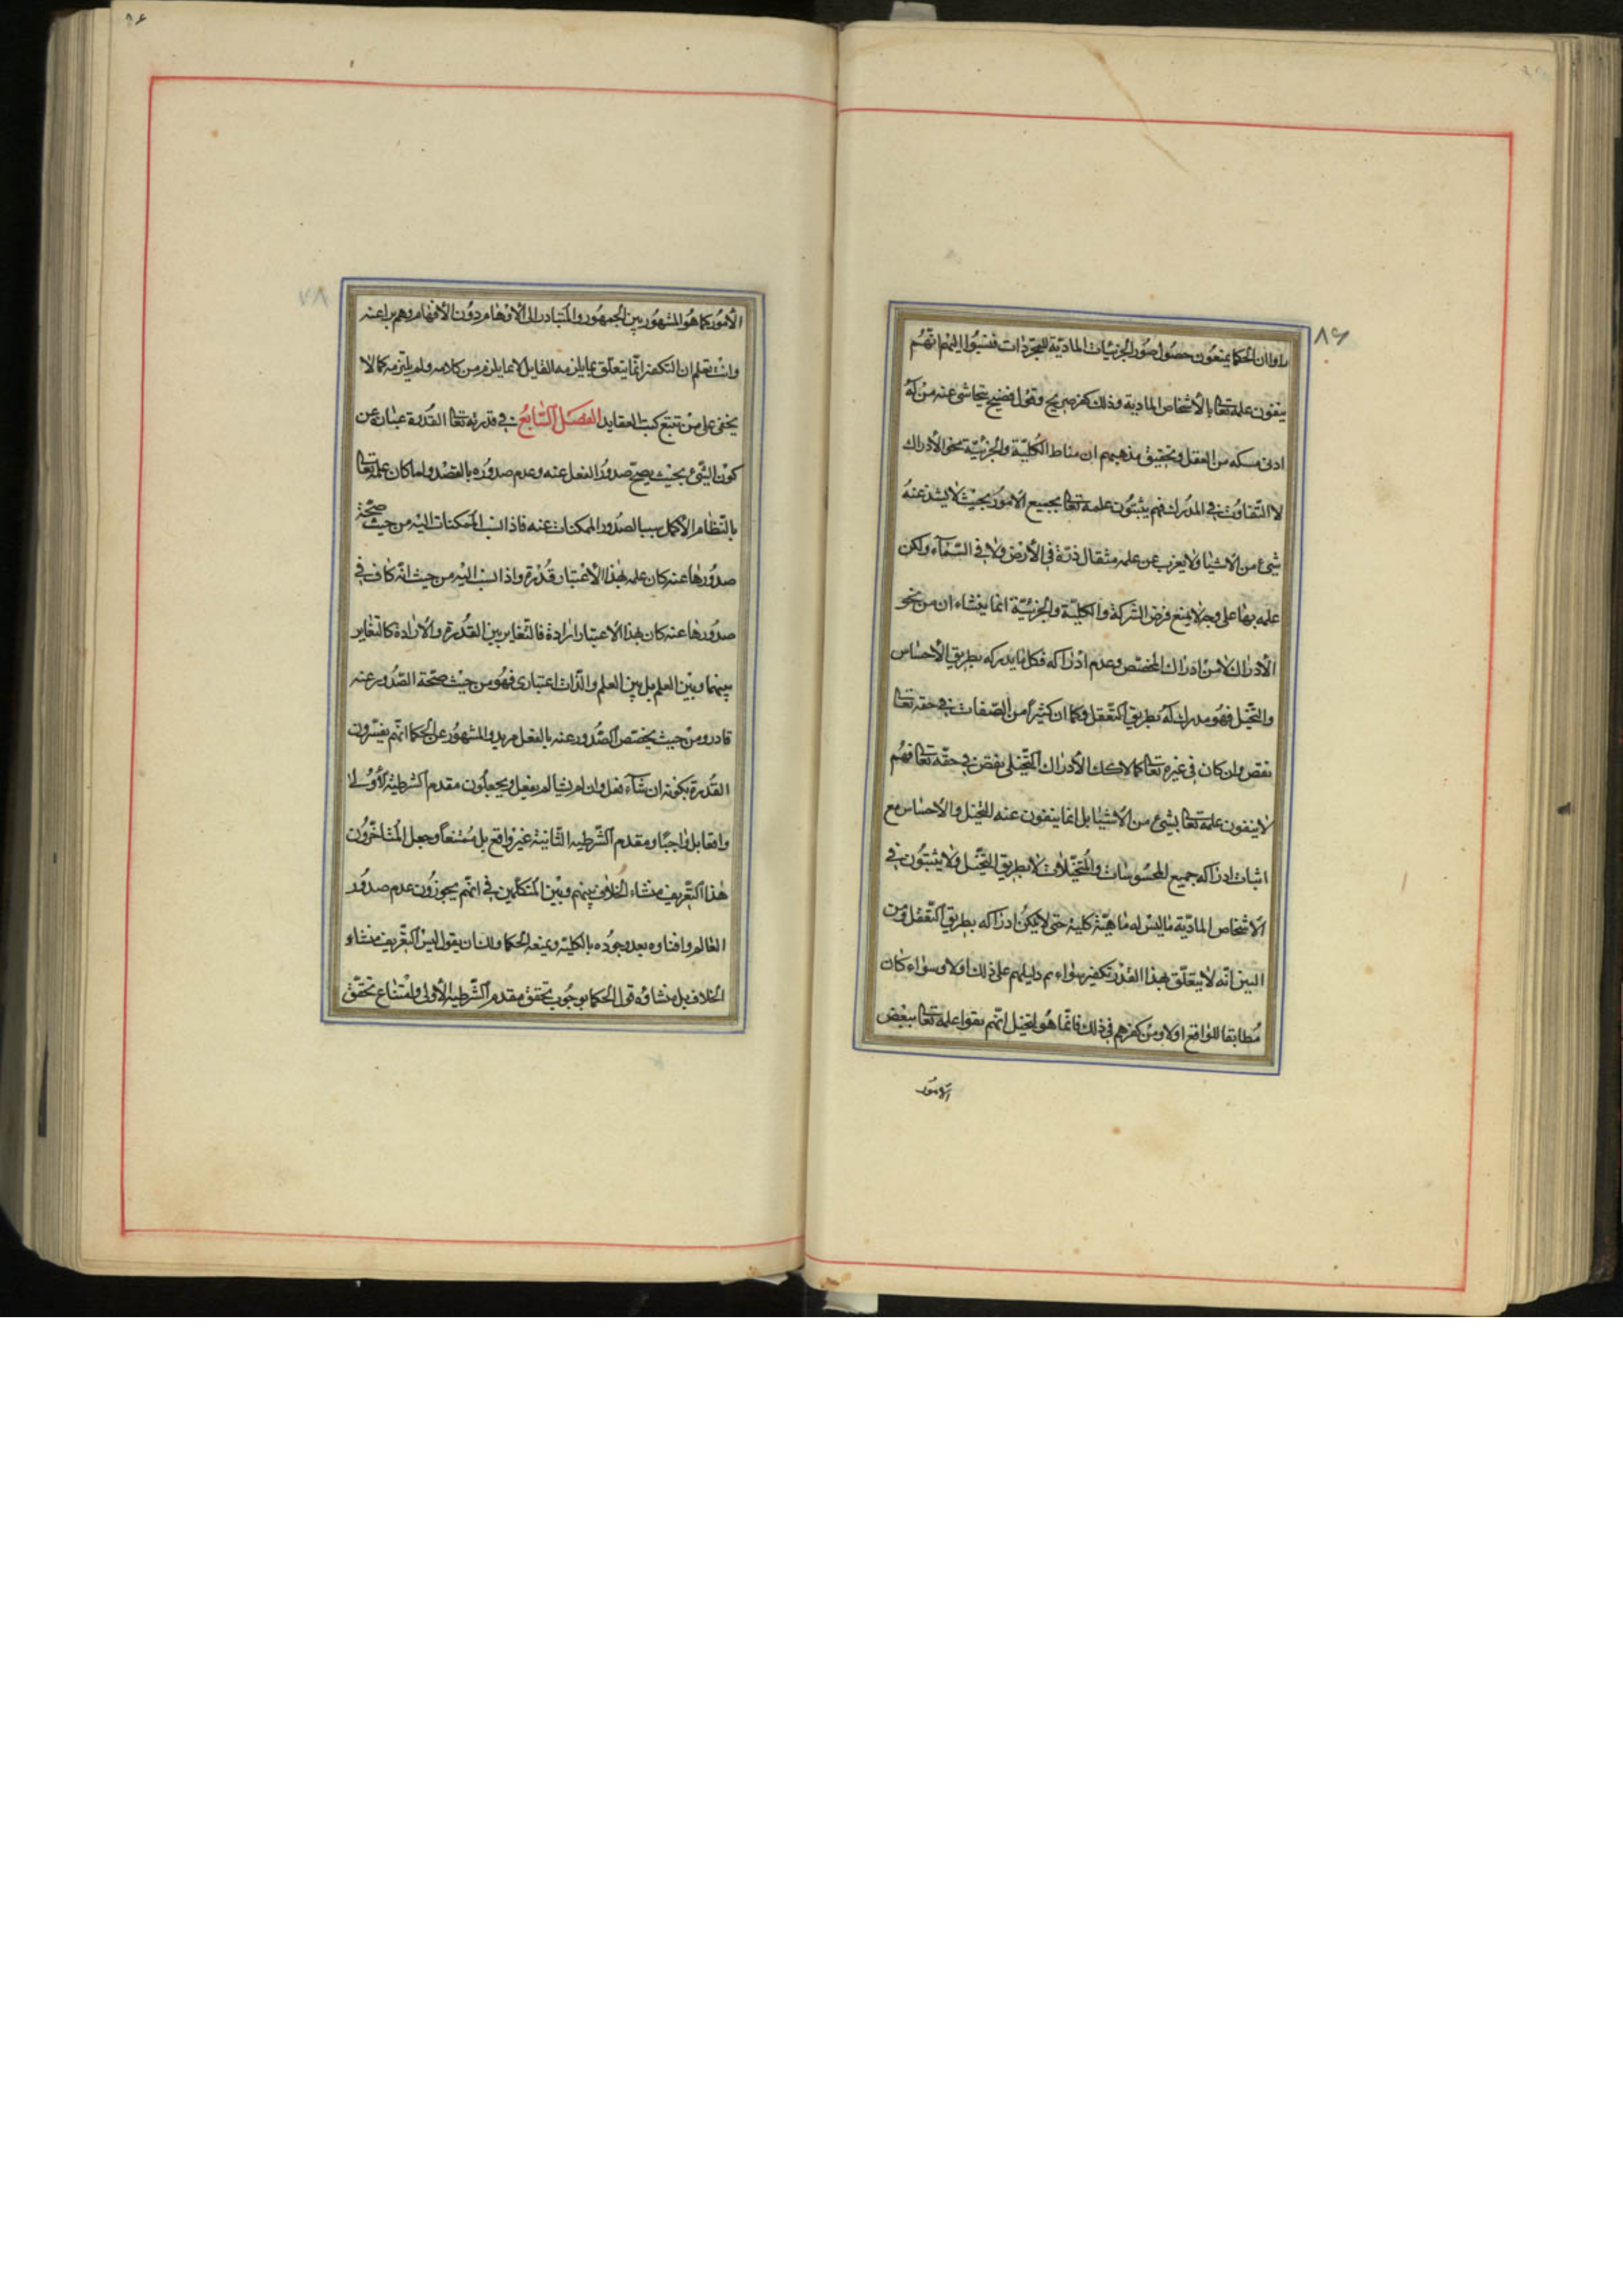 ٨٦
راوا ان الحكما يمنعون حصول صور الجزئيات المادية للمجردات فنسبوا اليهم انهم
ينفون علمه تعالى بالاشخاص المادية وذلك كفر صريح وقول فضيح يتحاشى عنه من له
ادنى مسكه من العقل وتحقيق مذهبهم ان مناط الكلية والجزئية نحو الادراك
لا التفاوت في المدرك فهم يثبتون علمه تعالى بجميع الامور بحيث لا يشذ عنه
شيء من الاشيا ولا يعزب عن علمه مثقال ذرة في الارض ولا في السماء ولكن
علمه بها على وجه لا يمنع فرض الشركة والكلية والجزئية انما ينشاء ان من نحو
الادراك لا من ادراك المخصص وعدم ادراكه فكل ما يدركه بطريق الاحساس
والتخيل فهو مدرك له بطريق التعقل وكما ان كثيرا من الصفات في حقه تعالى
نقص وان كان في غيره تعالى كمالا كك الادراك التخيلى نقص في حقه تعالى فهم
لا ينفون علمه تعالى بشيء من الاشيا بل انما ينفون عنه التخيل والاحساس مع
اثبات ادراكه جميع المحسوسات والمتخيلات لا بطريق التخيل ولا يثبتون في
الاشخاص المادية ما ليس له ماهية كلية حتى لا يمكن ادراكه بطريق التعقل ومن
البين انه لا يتعلق بهذا القدر تكفير سواء تم دليلهم على ذلك اولا وسواء كان
مطابقا للواقع اولا ومن كفرهم في ذلك فانما هو لتخيل انهم نفوا علمه تعالى ببعض
الامور
٧٨
الامور كما هو المشهور بين الجمهور والمتبادر الى الاوهام دون الافهام وهم براء عنه
وانت تعلم ان التكفير انما يتعلق بما يلزمه القايل لا بما يلزم من كلامه ولم يلتزمه كما لا
يخفى على من تتبع كتب العقايد الفصل السابع في قدرته تعالى القدرة عبارة عن
كون الشيء بحيث يصح صدور الفعل عنه وعدم صدوره بالقصد ولما كان علمه تعالى
بالنظام الاكمل سببا لصدور الممكنات عنه فاذا نسب الممكنات اليه من حيث صحة
صدورها عنه كان علمه بهذا الاعتبار قدرة واذا نسب اليه من حيث انه كاف في
صدورها عنه كان بهذا الاعتبار ارادة فالتغاير بين القدرة والارادة كالتغاير
بينهما وبين العلم بل بين العلم والذات اعتبارى فهو من حيث صحة الصدور عنه
قادر ومن حيث يخصص الصدور عنه بالفعل مريد والمشهور عن الحكما انهم يفسرون
القدرة بكونه ان شآء فعل وان لم يشا لم يفعل ويجعلون مقدم الشرطية الاولى
واقعا بل واجبا ومقدم الشرطيه الثانية غير واقع بل ممتنعا وجعل المتاخرون
هذا التعريف منشاء الخلاف بينهم وبين المتكلمين في انهم يجوزون عدم صدور
العالم وافناوه بعد وجوده بالكلية ويمنعه الحكما ولنا ان يقول ليس التعريف منشاء
الخلاف بل منشاوه قول الحكما بوجوب تحقق مقدم الشرطيه الاولى وامتناع تحقق